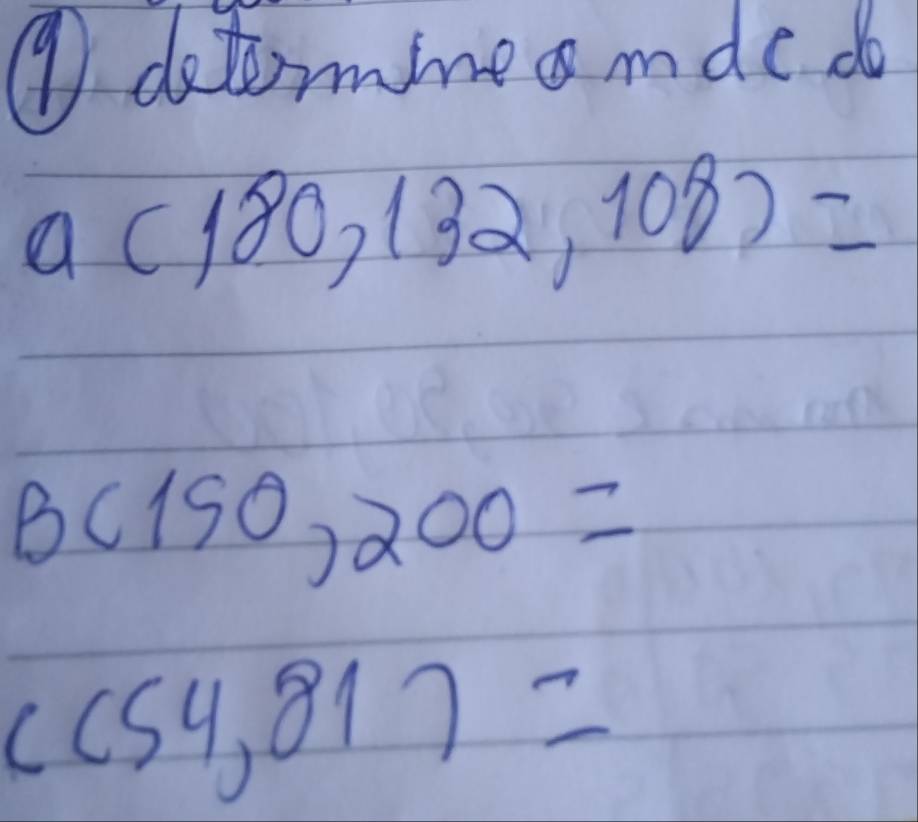 ① determine o mdc do
a (180, 132, 108) =
B (150, 200 =
c (54, 81) =